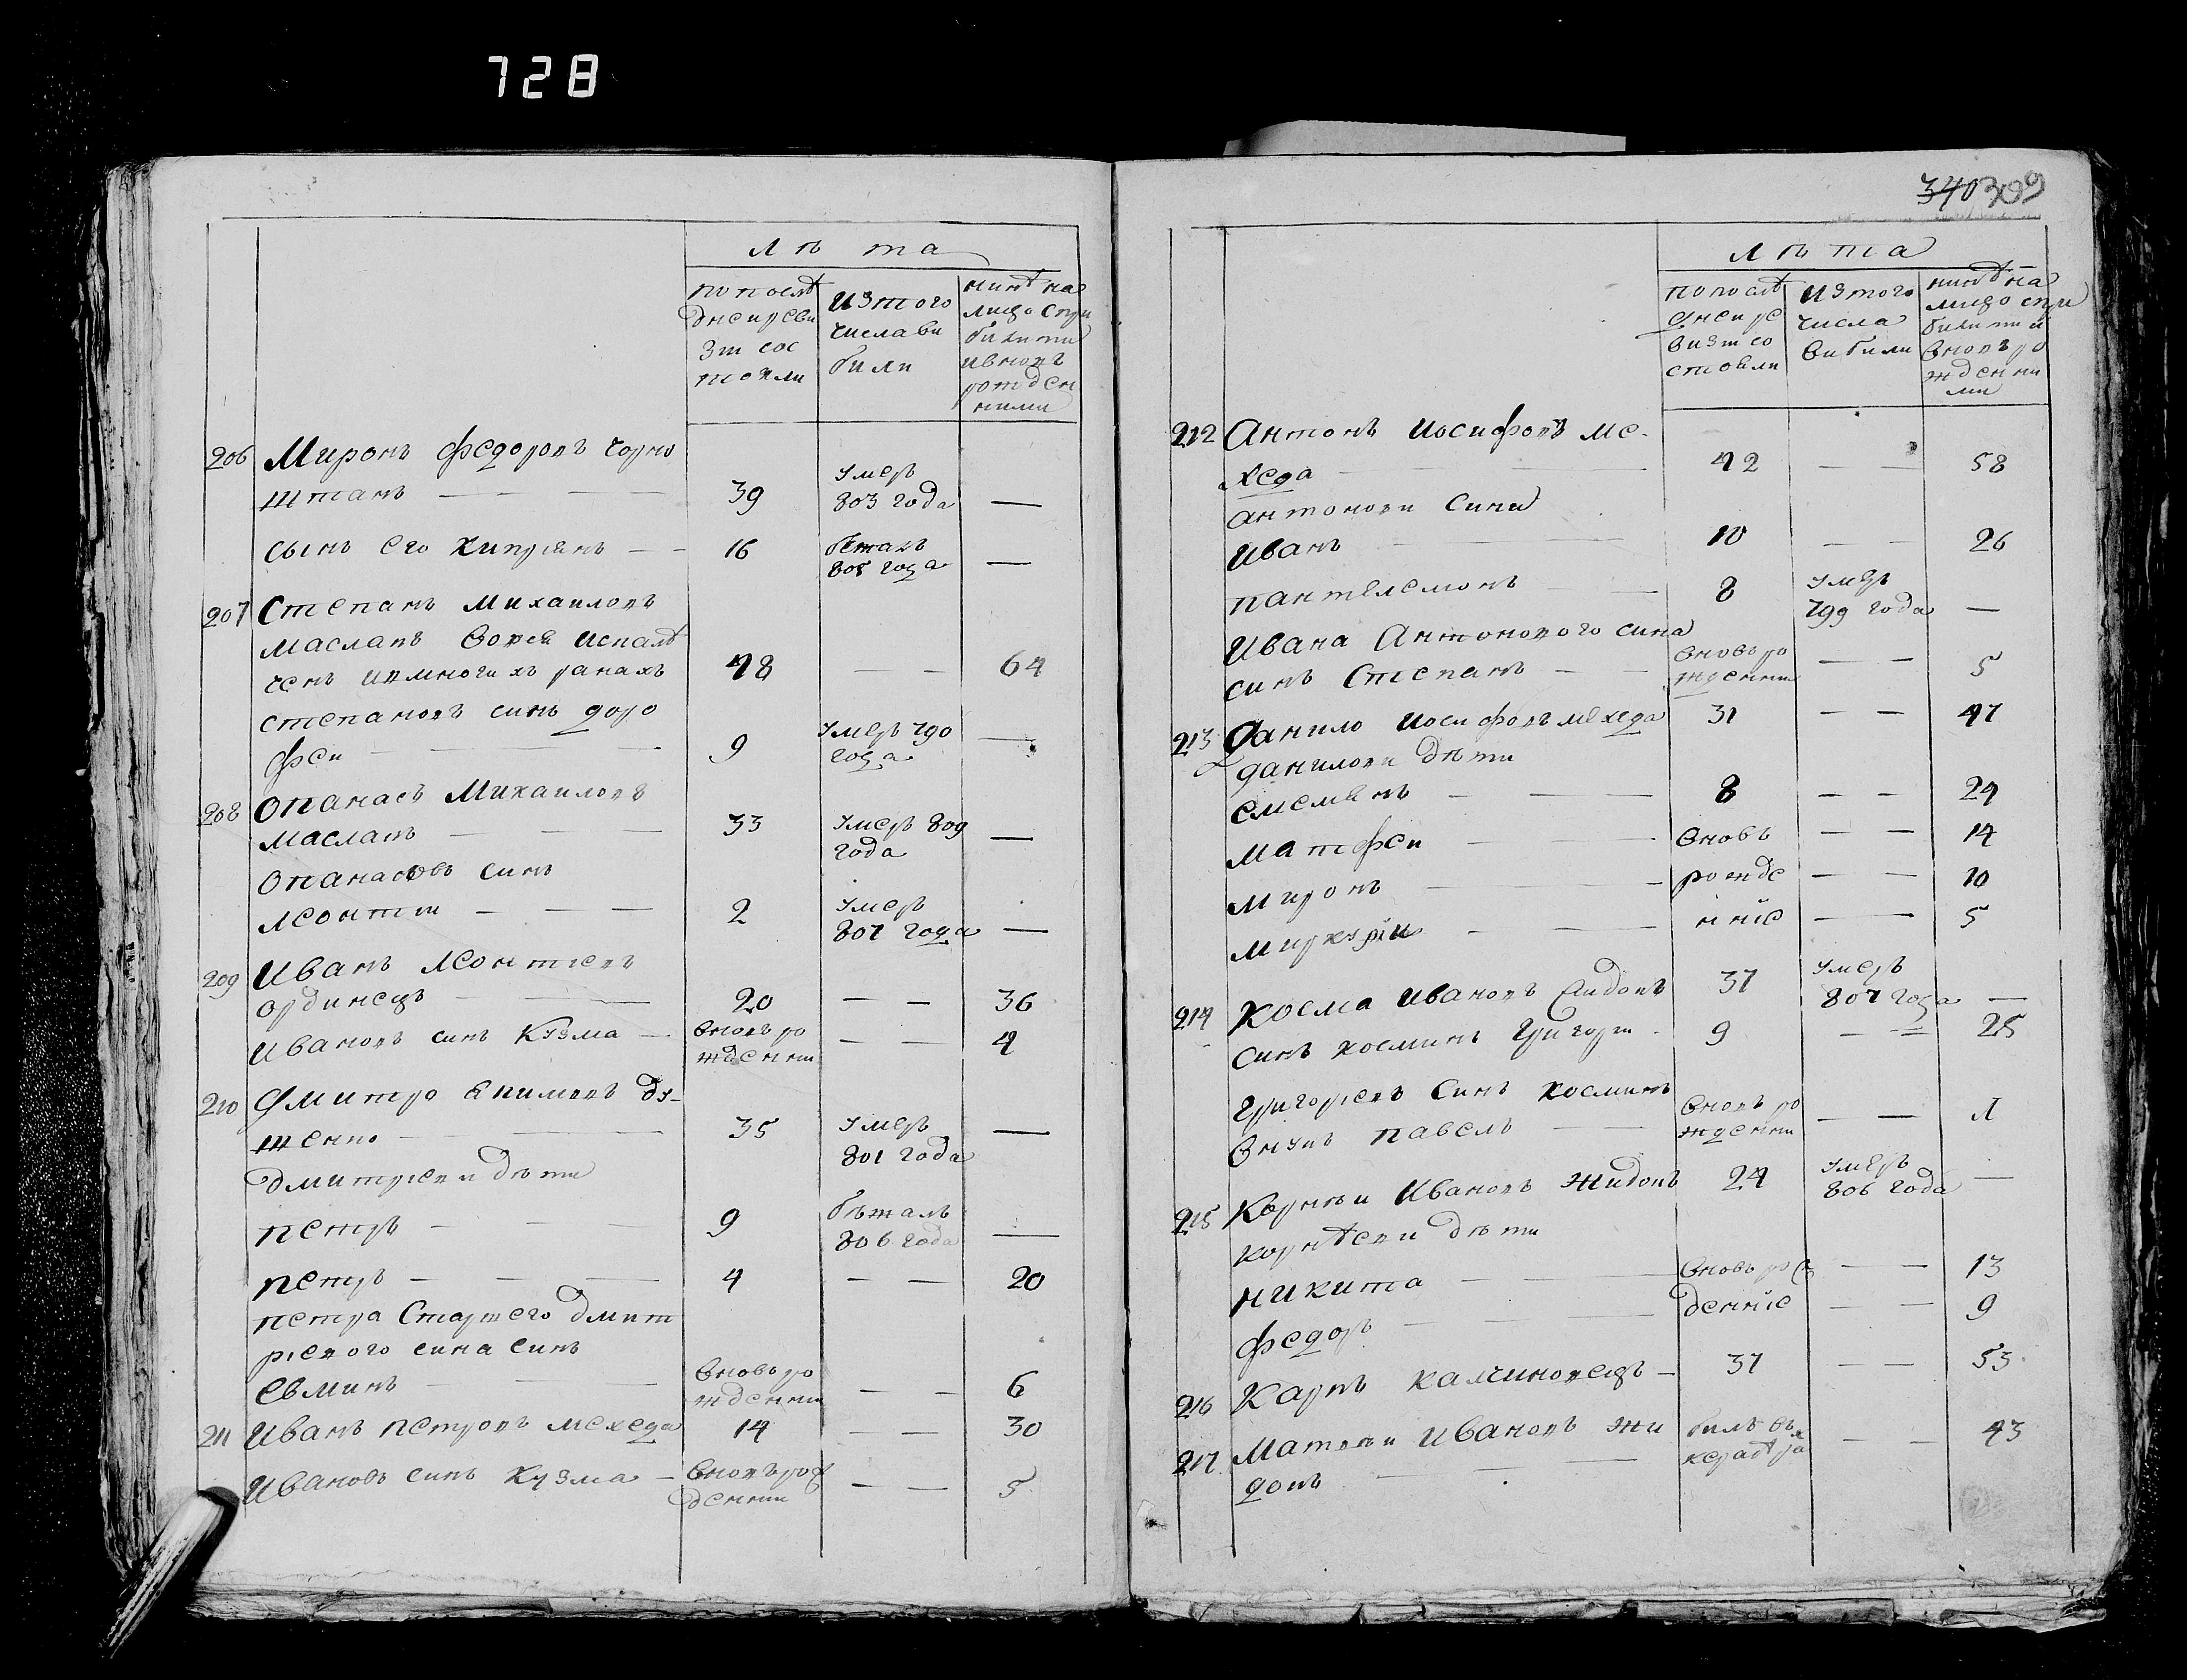 728
лѣта
попослѣ
днеи реви
зіи сос
тояли
изтого
числа ви
били
нинѣ на
лицо спри
билими
ивновъ
рожден
ними
206 Миронъ Федоровъ Чорно
штанъ — 39 умеръ
803 года —
сынъ его Кипріянъ — 16 бежалъ
805 года —
207 Степанъ Михаиловъ
Маслакъ
ченъ имногихъ ранахъ 48 — — 64
Степановъ синъ Доро
феи — 9 умеръ 790
года —
208 Опанасъ Михаиловъ
Маслакъ — 33 умеръ 809
года —
Опанасовъ синъ
Леонтіи — 2 умеръ
807 года —
209 Иванъ Леонтіевъ
Ординецъ — 20 — — 36
Ивановъ синъ Кузма — вновъ ро
жденніи — — 4
210 Дмитро Якимовъ Ду-
шенко — 35 умеръ
801 года —
Дмитріеви дѣти
Петръ — 9 бѣжалъ
806 года —
Петръ — 4 — — 20
Петра старшего Дмит
ріевого сина синъ
Евминъ — вновъ ро
жденніи — — 6
211 Иванъ Петровъ Мехеда 14 — — 30
Ивановъ синъ Кузма — вновъ рож
денніи — — 5
340 309
лѣта
попослѣ
днеи ре
визіи со
стояли
изтого
числа
вибили
нинѣ на
лицо спри
билими и
вновъ ро
жденни
ми
212 Антонъ Иосифовъ Ме-
хеда — 42 — — 58
Антонови сини
Иванъ — 10 — — 26
Пантелемонъ — 8 умеръ
799 года —
Ивана Антонового сина
синъ Степанъ — вновъ ро
жденніи — — 5
213 Данило Иосифовъ Мехеда 31 — — 47
Данилови дѣти
Емемянъ — 8 — — 24
Матфеи — вновъ — — 14
Миронъ — рожде — — 10
Миркуріи — нніе — — 5
214 Косма Ивановъ Жидовъ 37 умеръ
807 года —
синъ Косминъ Григоріи 9 — — 25
Григоріевъ синъ Косминъ
внукъ Павелъ — вновъ ро
жденніи — —
215 Корнѣи Ивановъ Жидовъ 24 умеръ
806 года —
Корнѣеви дѣти
Никита — вновъ рож — — 13
Федоръ — денніе — — 9
216 Карпъ Калчиновецъ — 37 — — 53
217 Матвѣи Ивановъ Жи
довъ — билъ въ — — 43